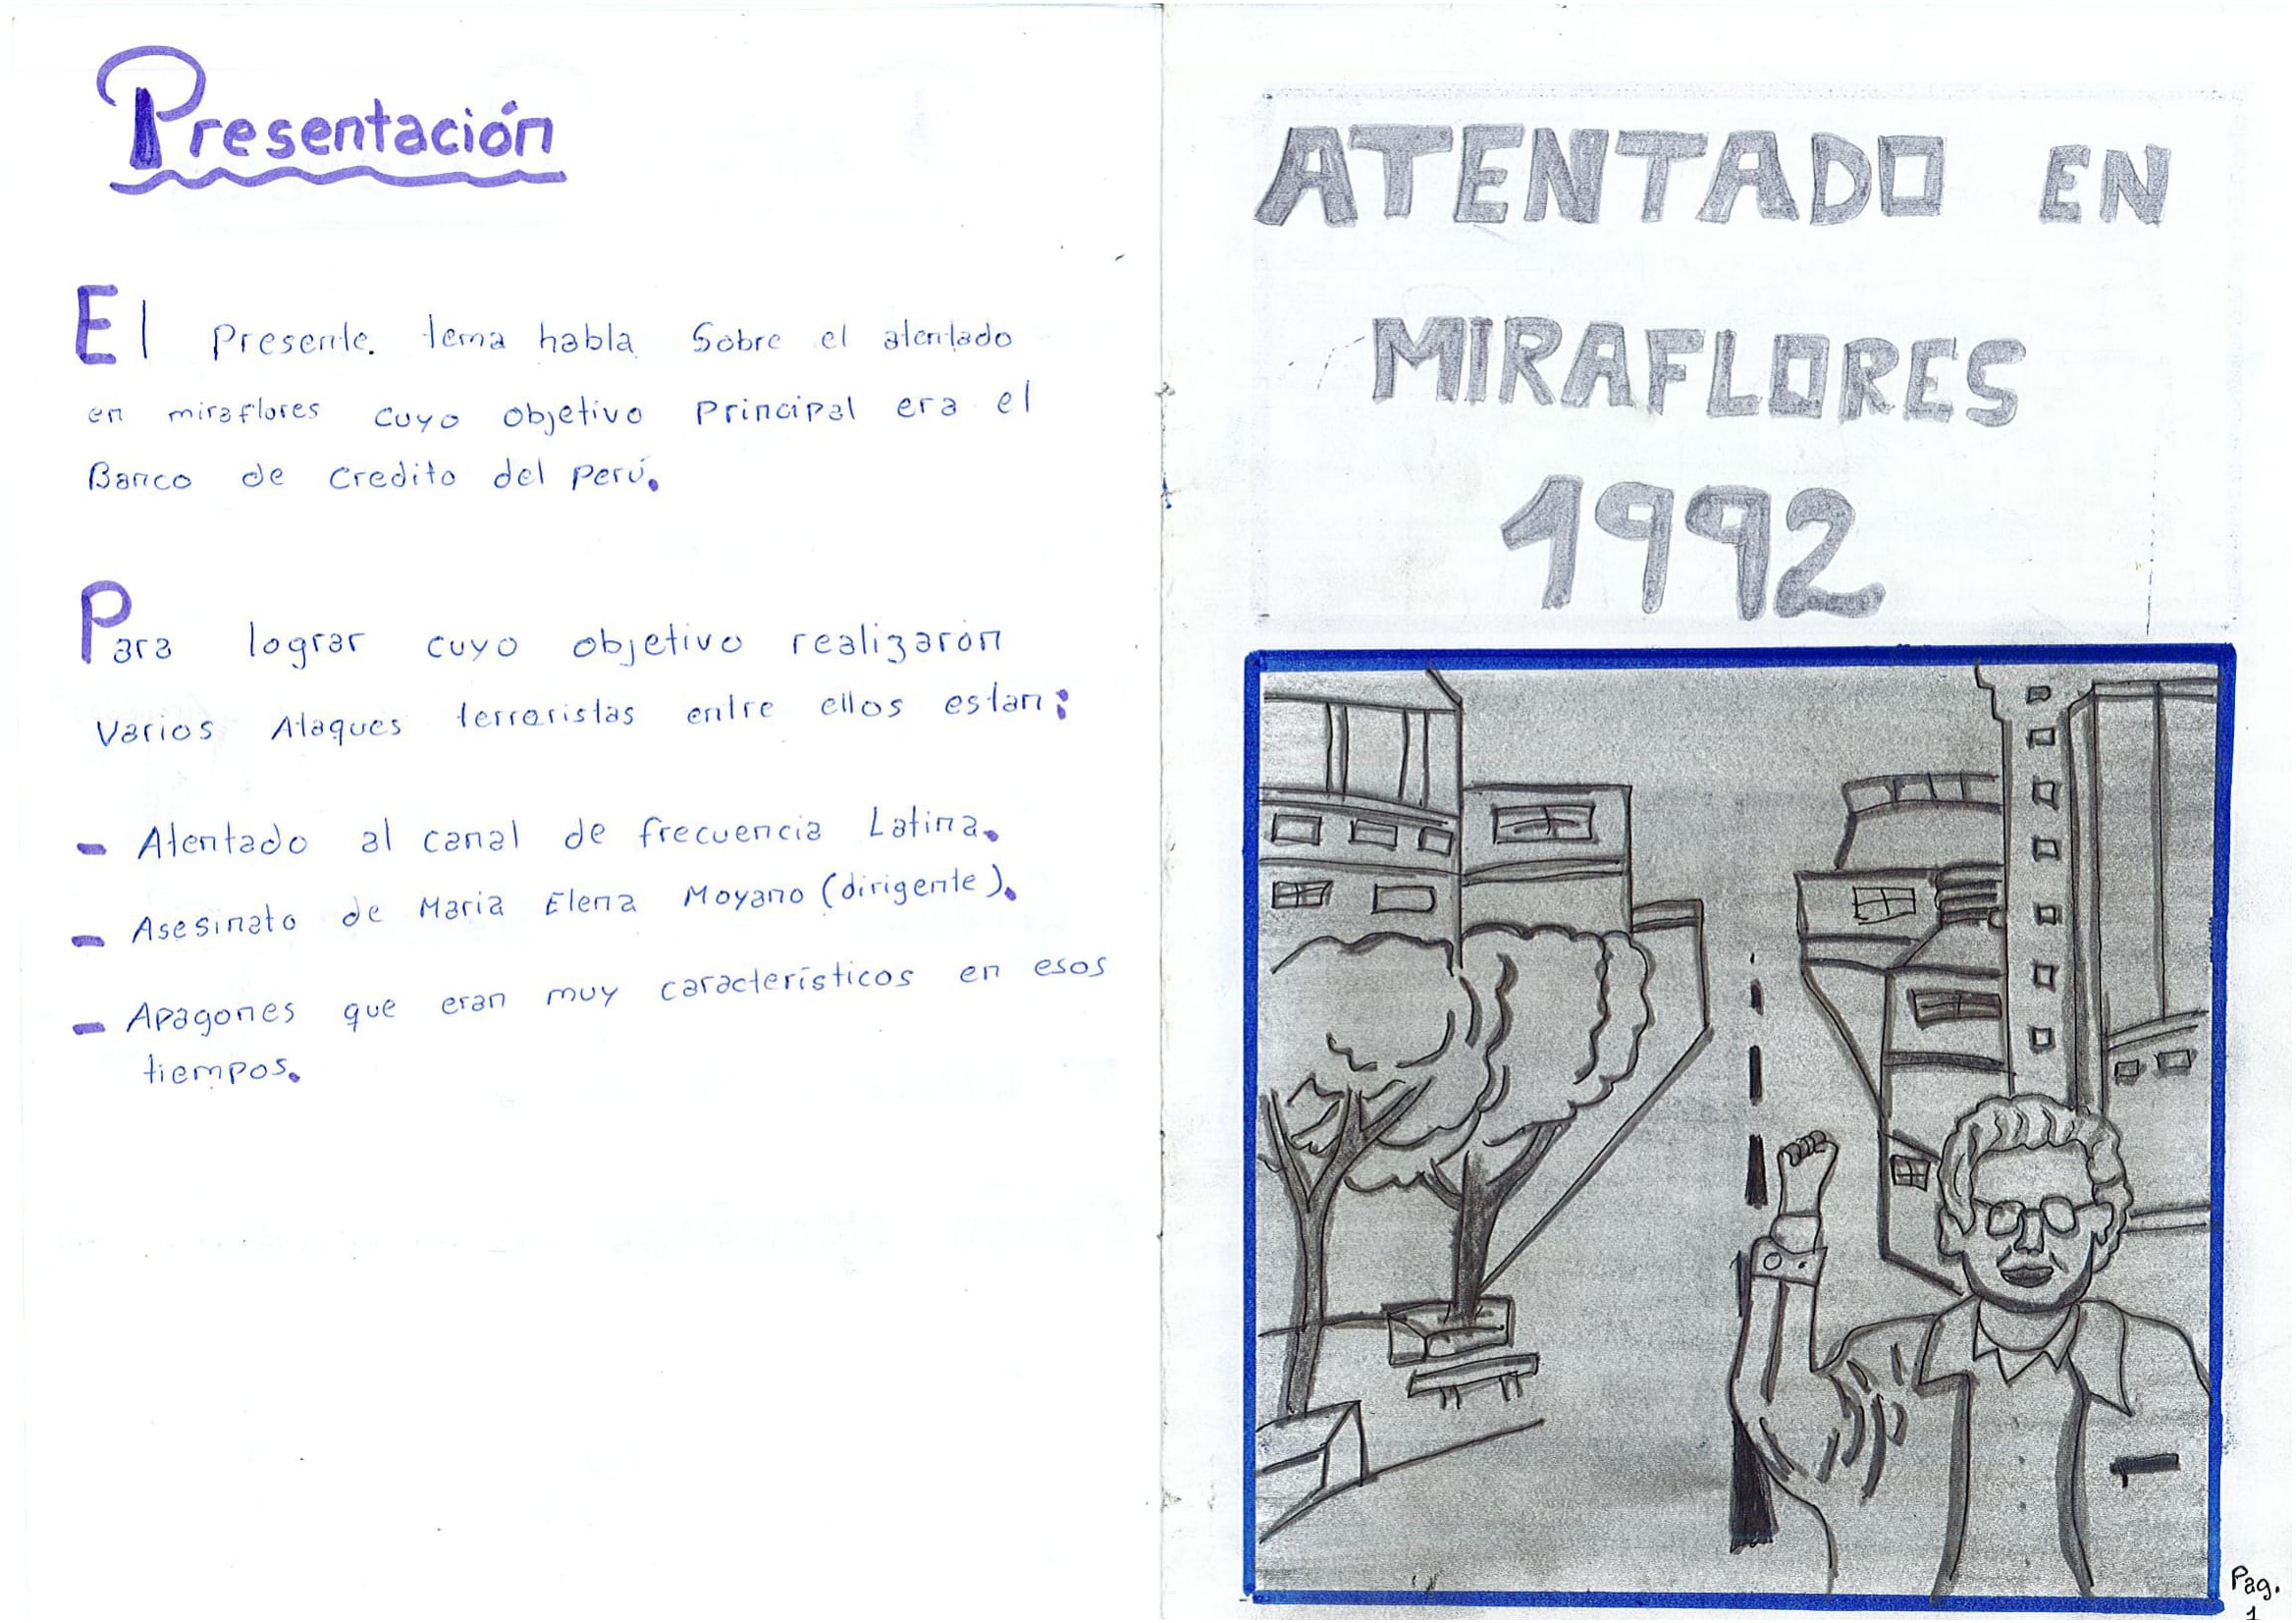 Presentación
El Presente. tema habla Sobre el atentado
en miraflores cuyo objetivo Principal era el
Banco de credito del perú.
Para lograr cuyo objetivo realizarón
Varios Ataques terroristas entre ellos estan:
- Atentado al canal de frecuencia Latina.
- Asesinato de Maria Elena Moyano (dirigente).
- Apagones que eran muy característicos en esos
tiempos.
ATENTADO EN
MIRAFLORES
1992
Pag.
1